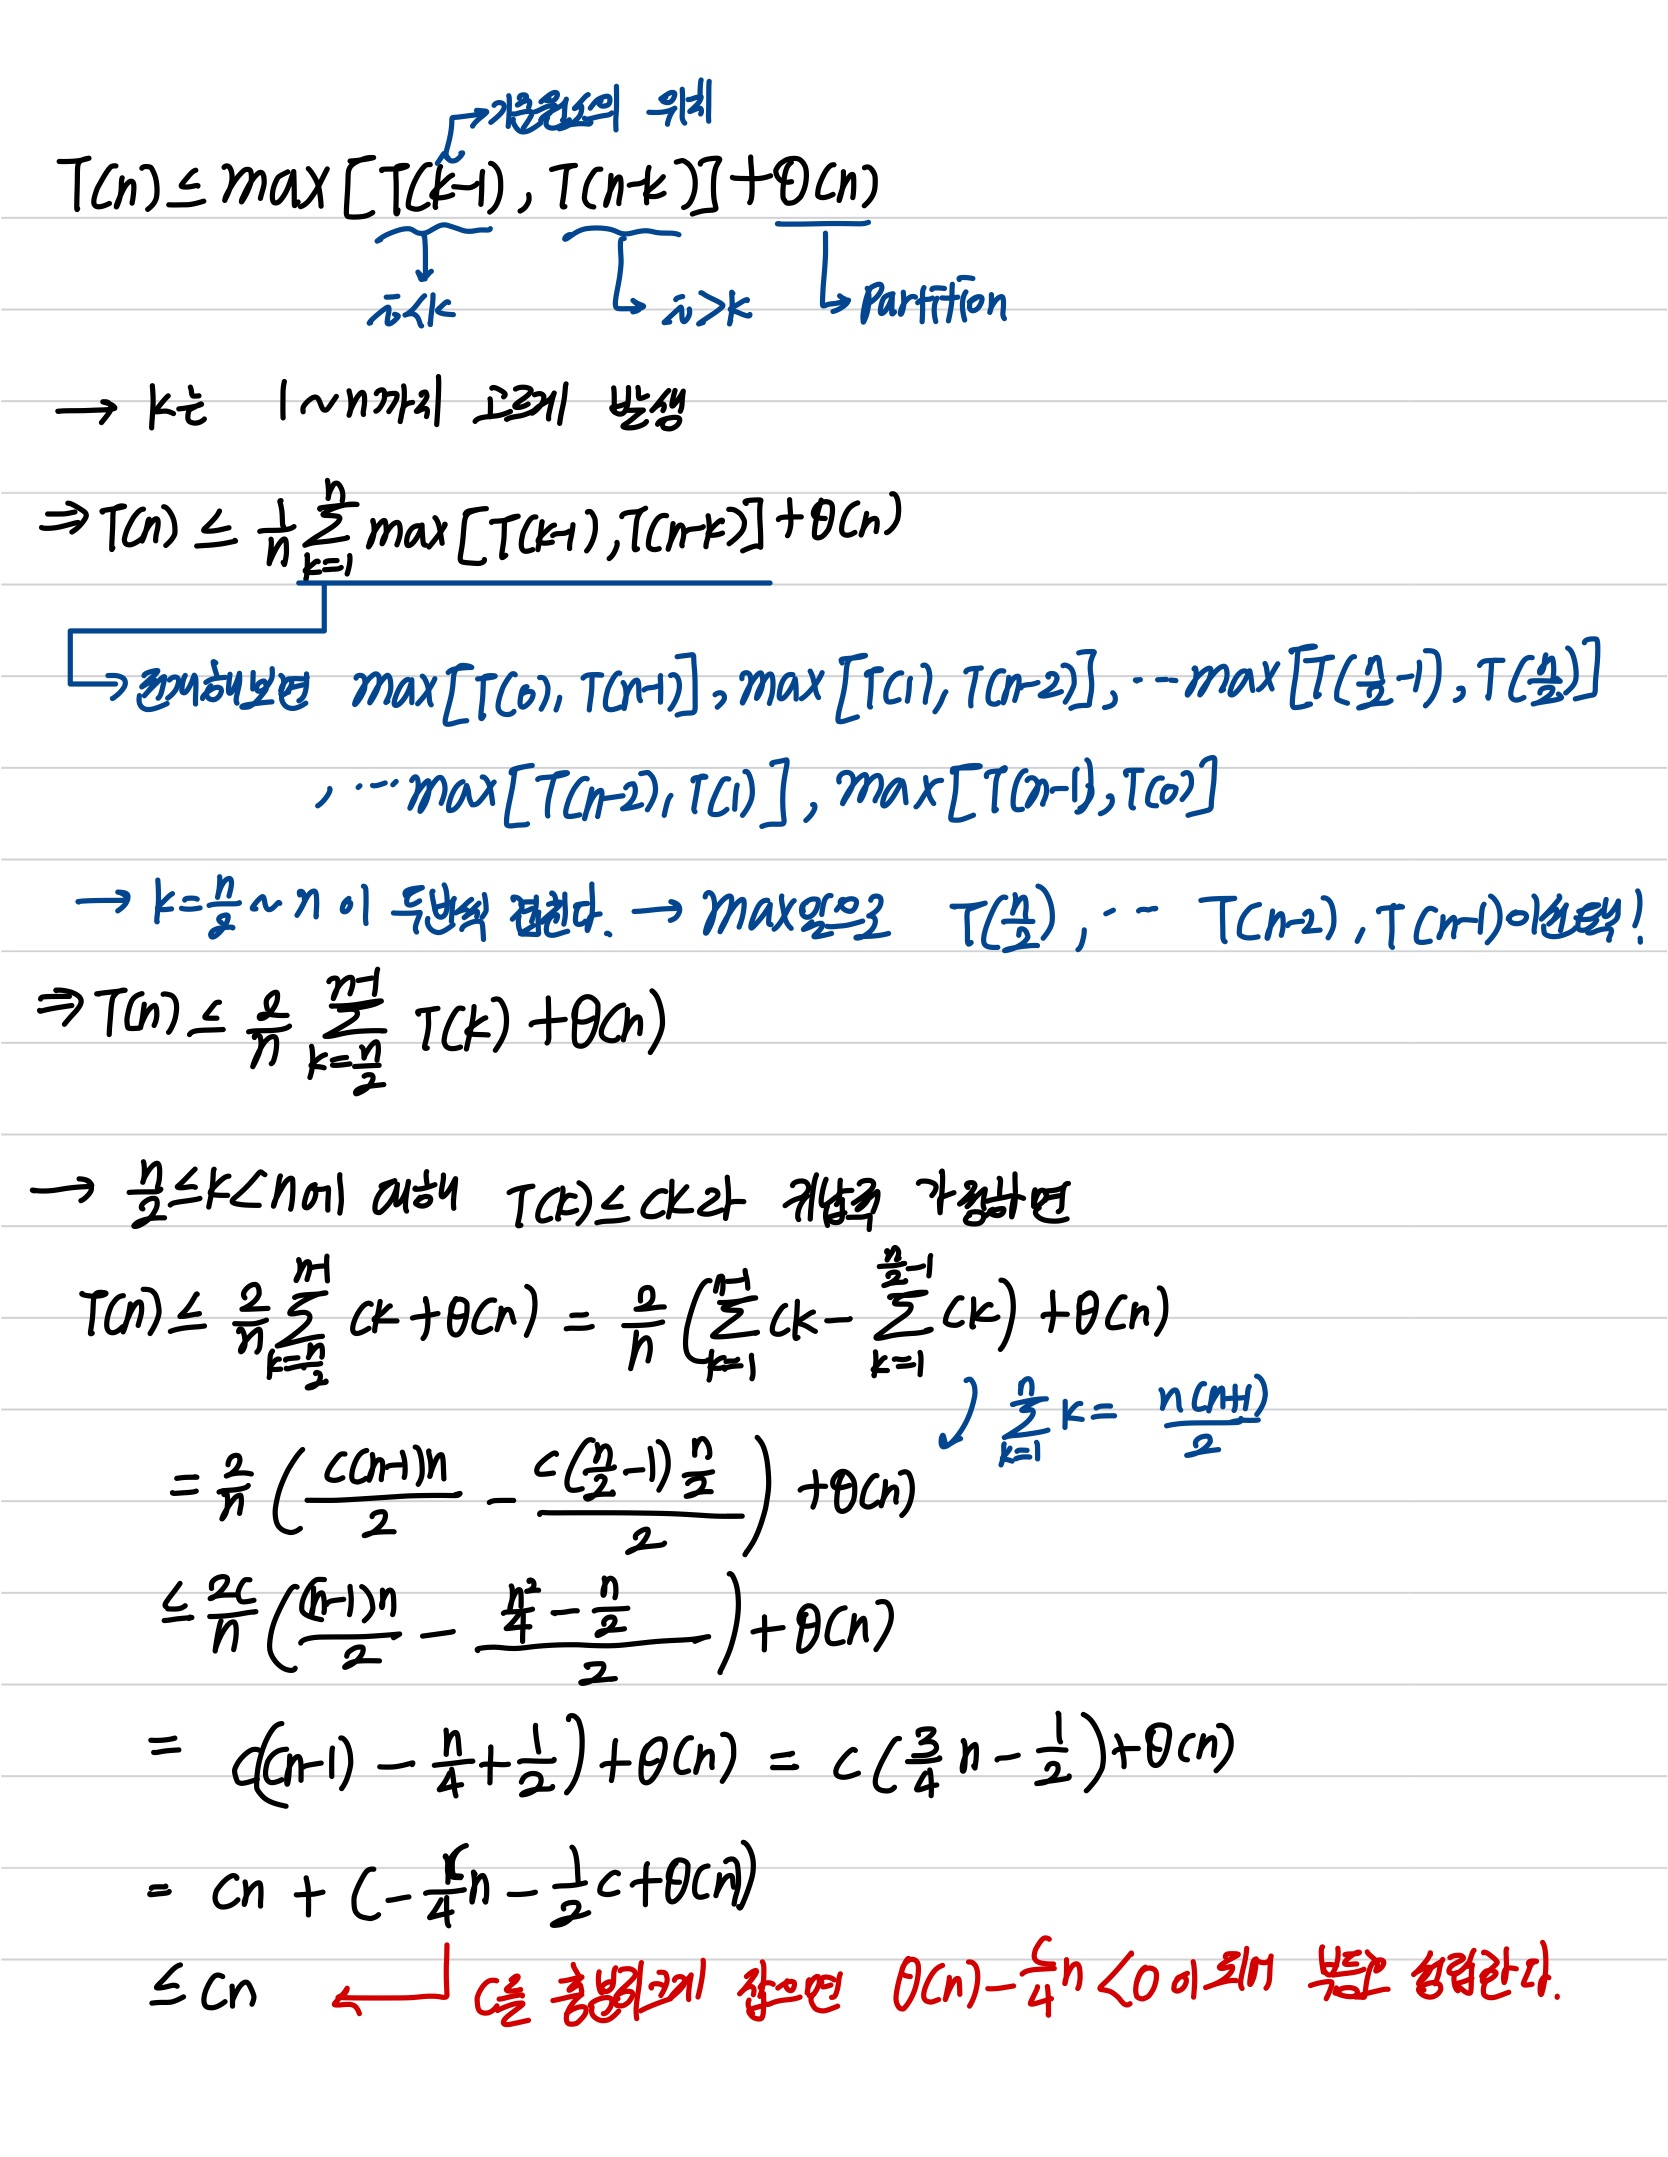 기준원소의 위치
T(n) ≤ max[T(k-1), T(n-k)] + Θ(n)
i<k
i>k
Partition
→ k는 1~n까지 고르게 발생
⇒ T(n) ≤ 1/n Σ_{k=1}^{n} max[T(k-1), T(n-k)] + Θ(n)
→ 전개해보면 max[T(0), T(n-1)], max[T(1), T(n-2)], … max[T(n/2-1), T(n/2)]
, … max[T(n-2), T(1)], max[T(n-1), T(0)]
→ k = n/2 ~ n 이 두번씩 겹친다. → max으로 T(n/2), … T(n-2), T(n-1)이 선택!
⇒ T(n) ≤ 2/n Σ_{k=n/2}^{n-1} T(k) + Θ(n)
→ n/2 ≤ k < n에 대해 T(k) ≤ ck라 귀납적 가정하면
T(n) ≤ 2/n Σ_{k=n/2}^{n-1} ck + Θ(n) = 2/n (Σ_{k=1}^{n-1} ck - Σ_{k=1}^{n/2-1} ck) + Θ(n)
Σ_{k=1}^{n} k = n(n+1)/2
= 2/n (c(n-1)n/2 - c(n/2-1)n/2/2) + Θ(n)
≤ 2c/n ((n-1)n/2 - (n²/4 - n/2)/2) + Θ(n)
= c((n-1) - n/4 + 1/2) + Θ(n) = c(3/4 n - 1/2) + Θ(n)
= cn + (-c/4 n - 1/2 c + Θ(n))
≤ cn ← c를 충분히 크게 잡으면 Θ(n) - c/4 n < 0 이 되어 부등호 성립한다.